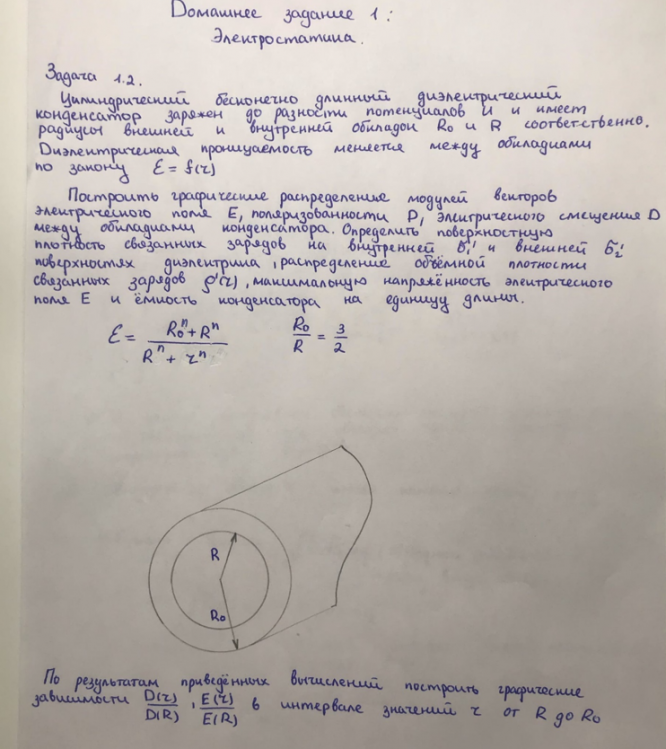 Домашнее задание 1:
Электростатика.
Задача 1.2.
Цилиндрический бесконечно длинный диэлектрический
конденсатор заряжен до разности потенциалов U и имеет
радиусы внешней и внутренней обкладок R₀ и R соответственно.
Диэлектрическая проницаемость меняется между обкладками
по закону ε = f(r)
Построить графические распределения модулей векторов
электрического поля E, поляризованности P, электрического смещения D
между обкладками конденсатора. Определить поверхностную
плотность связанных зарядов на внутренней σ₁' и внешней σ₂'
поверхностях диэлектрика, распределение объёмной плотности
связанных зарядов ρ'(r), максимальную напряжённость электрического
поля E и ёмкость конденсатора на единицу длины.
ε = (R₀ⁿ + Rⁿ) / (Rⁿ + rⁿ) R₀/R = 3/2
R
R₀
По результатам приведённых вычислений построить графические
зависимости D(r)/D(R), E(r)/E(R) в интервале значений r от R до R₀